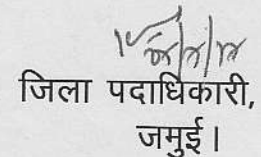 जिला पदाधिकारी,
जमुई।